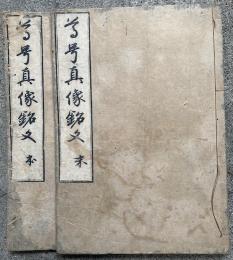 尊号真像銘文 末
尊号真像銘文 本